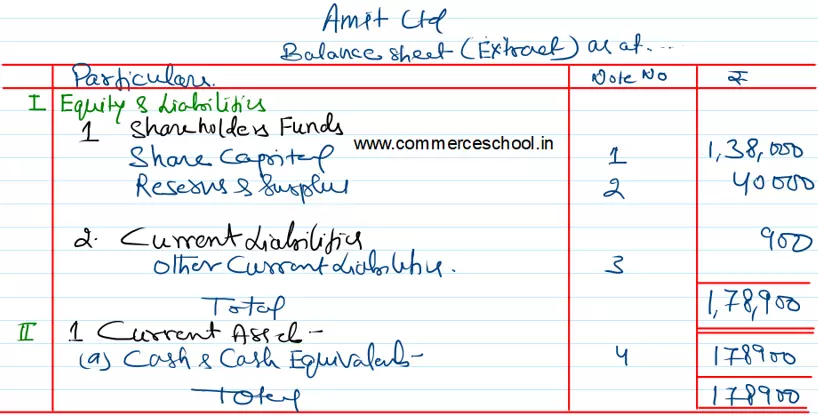 Amit Ltd
Balance sheet (Extract) as at....
Particulars. Note No ₹
I Equity & Liabilities
1 Shareholders Funds
www.commerceschool.in
Share Capital 1 1,38,000
Reserves & Surplus 2 40000
2. Current Liabilities 900
Other Current Liabilities. 3
Total 1,78,900
II 1 Current Asset -
(a) Cash & Cash Equivalents - 4 178900
Total 178900